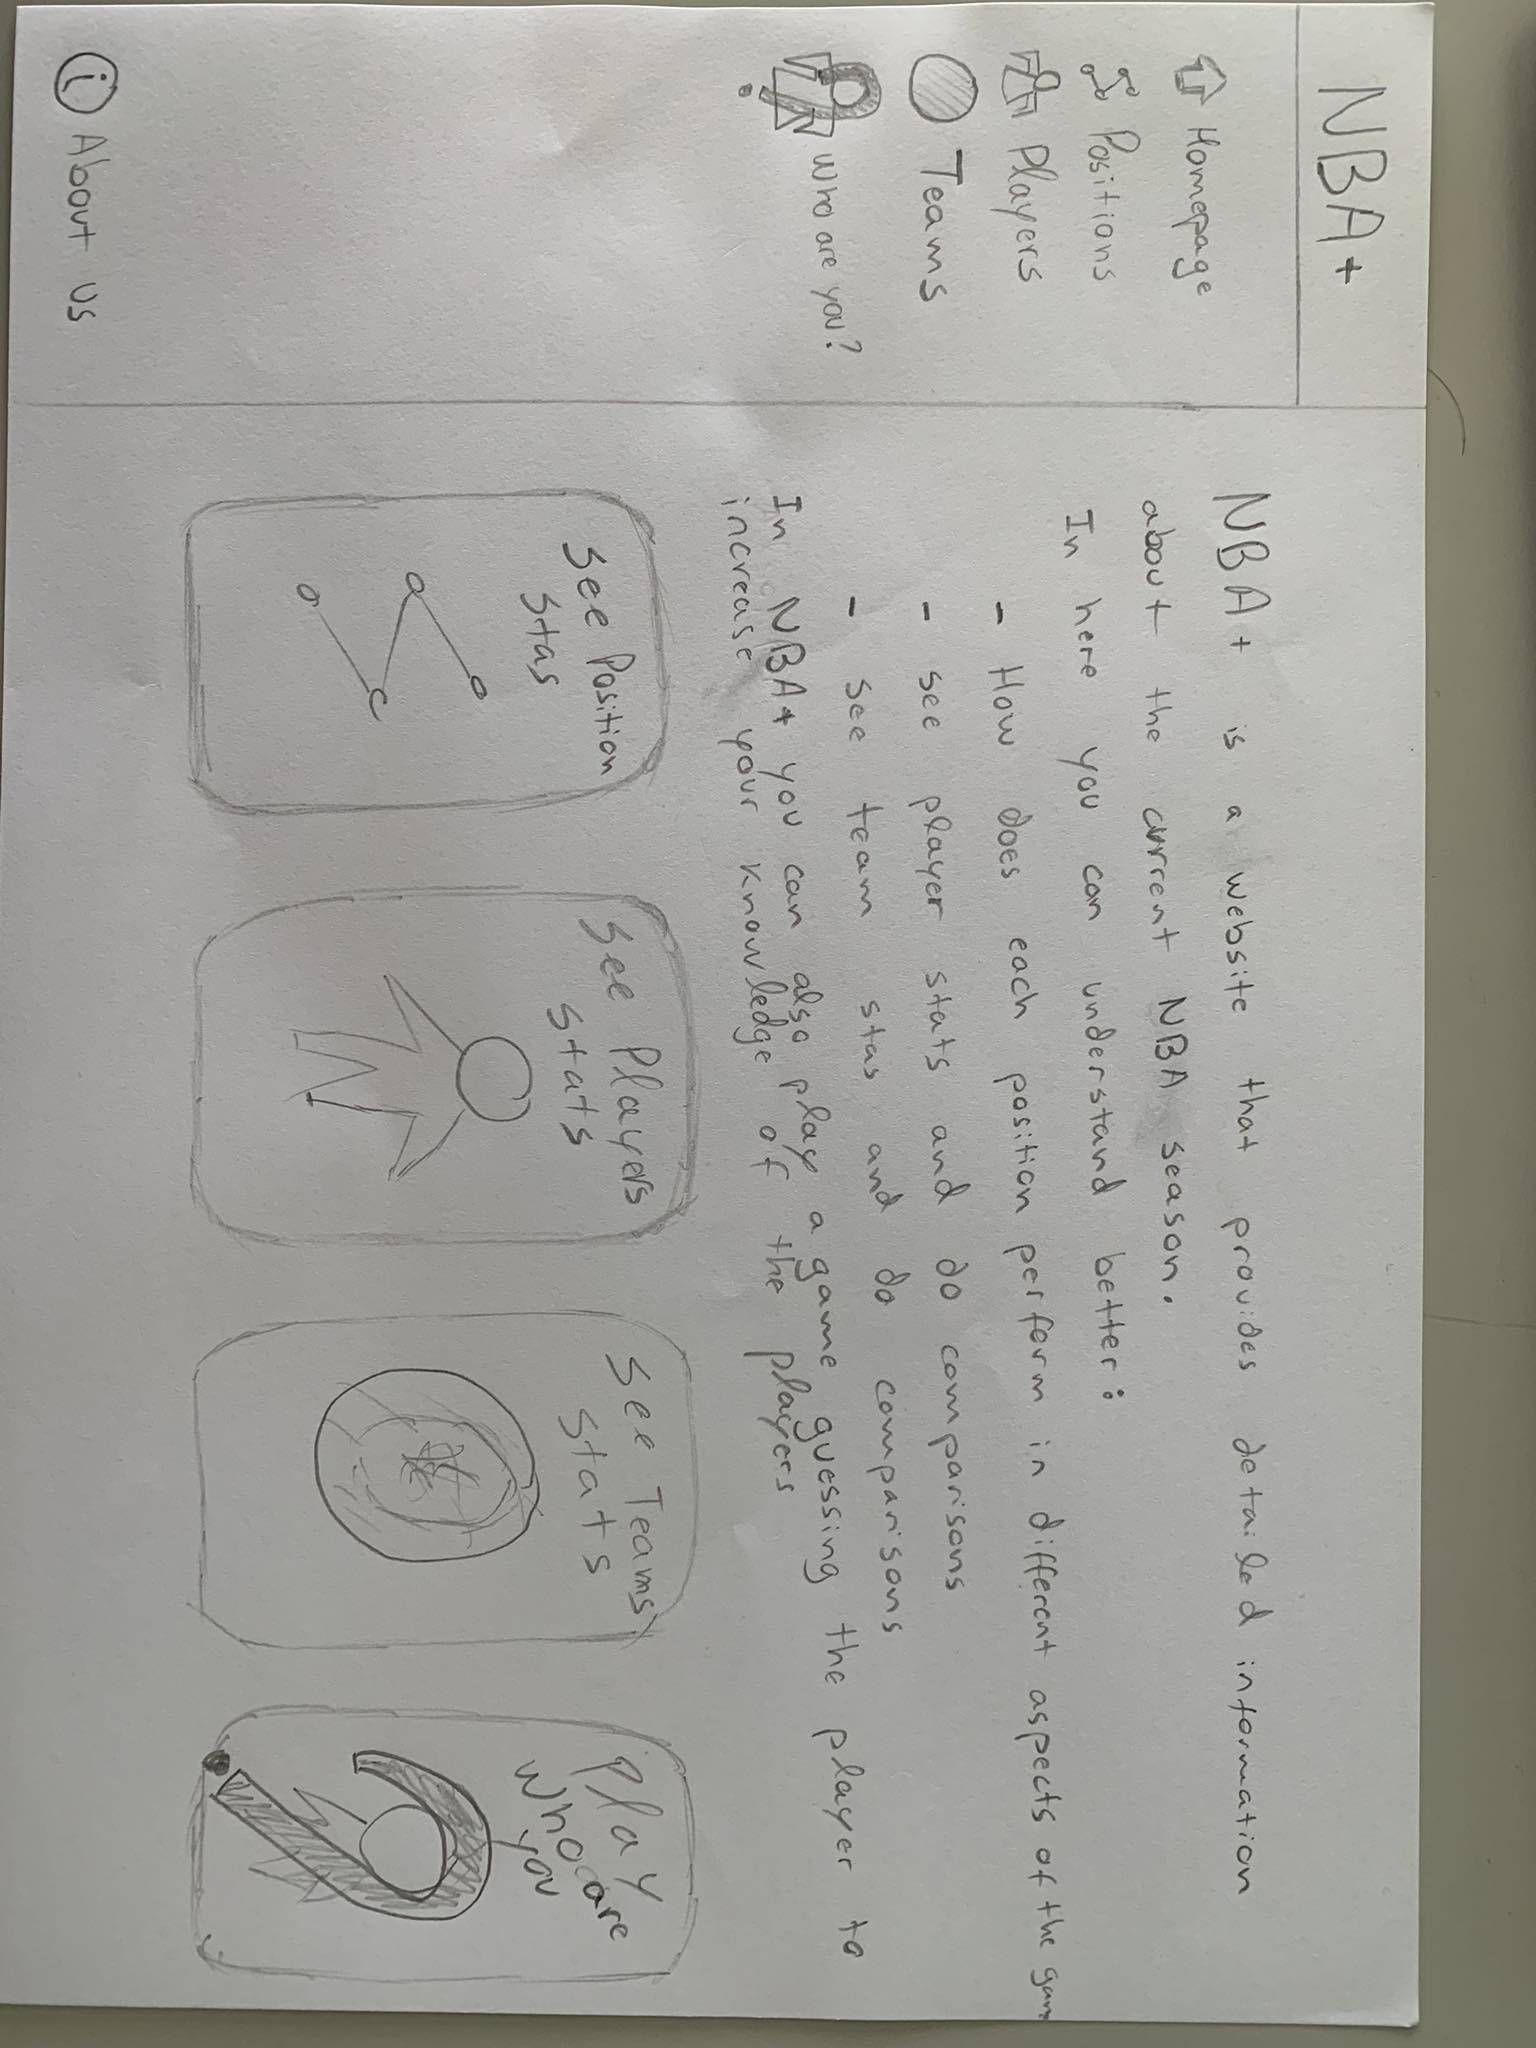 NBA+
Homepage
Positions
Players
Teams
who are you?
i About us
NBA+ is a website that provides detailed information
about the current NBA season.
In here you can understand better:
- How does each position perform in different aspects of the gam
- see player stats and do comparisons
- see team stas and do comparisons
In NBA+ you can also play a game guessing the player to
increase your knowledge of the players
See Position
stas
See Players
stats
See Teams
stats
Play
who are
you